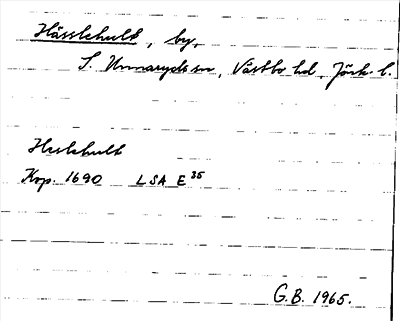 Hässlehult, by,
S. Unnaryds sn, Västbo hd, Jönk. l.
Heslehult
Kop. 1690 LSA E 35
G.B. 1965.